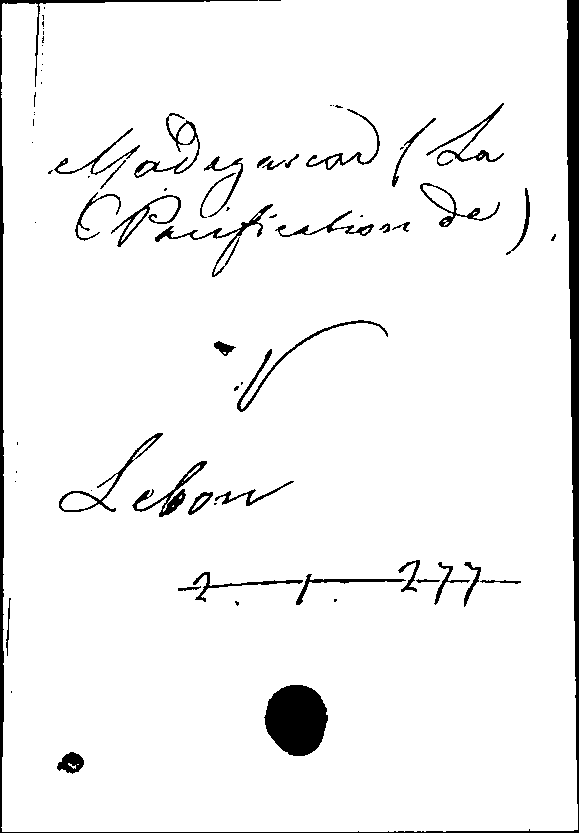 Madagascar (La
Pacification de).
V
Lebon
2. 1. 277